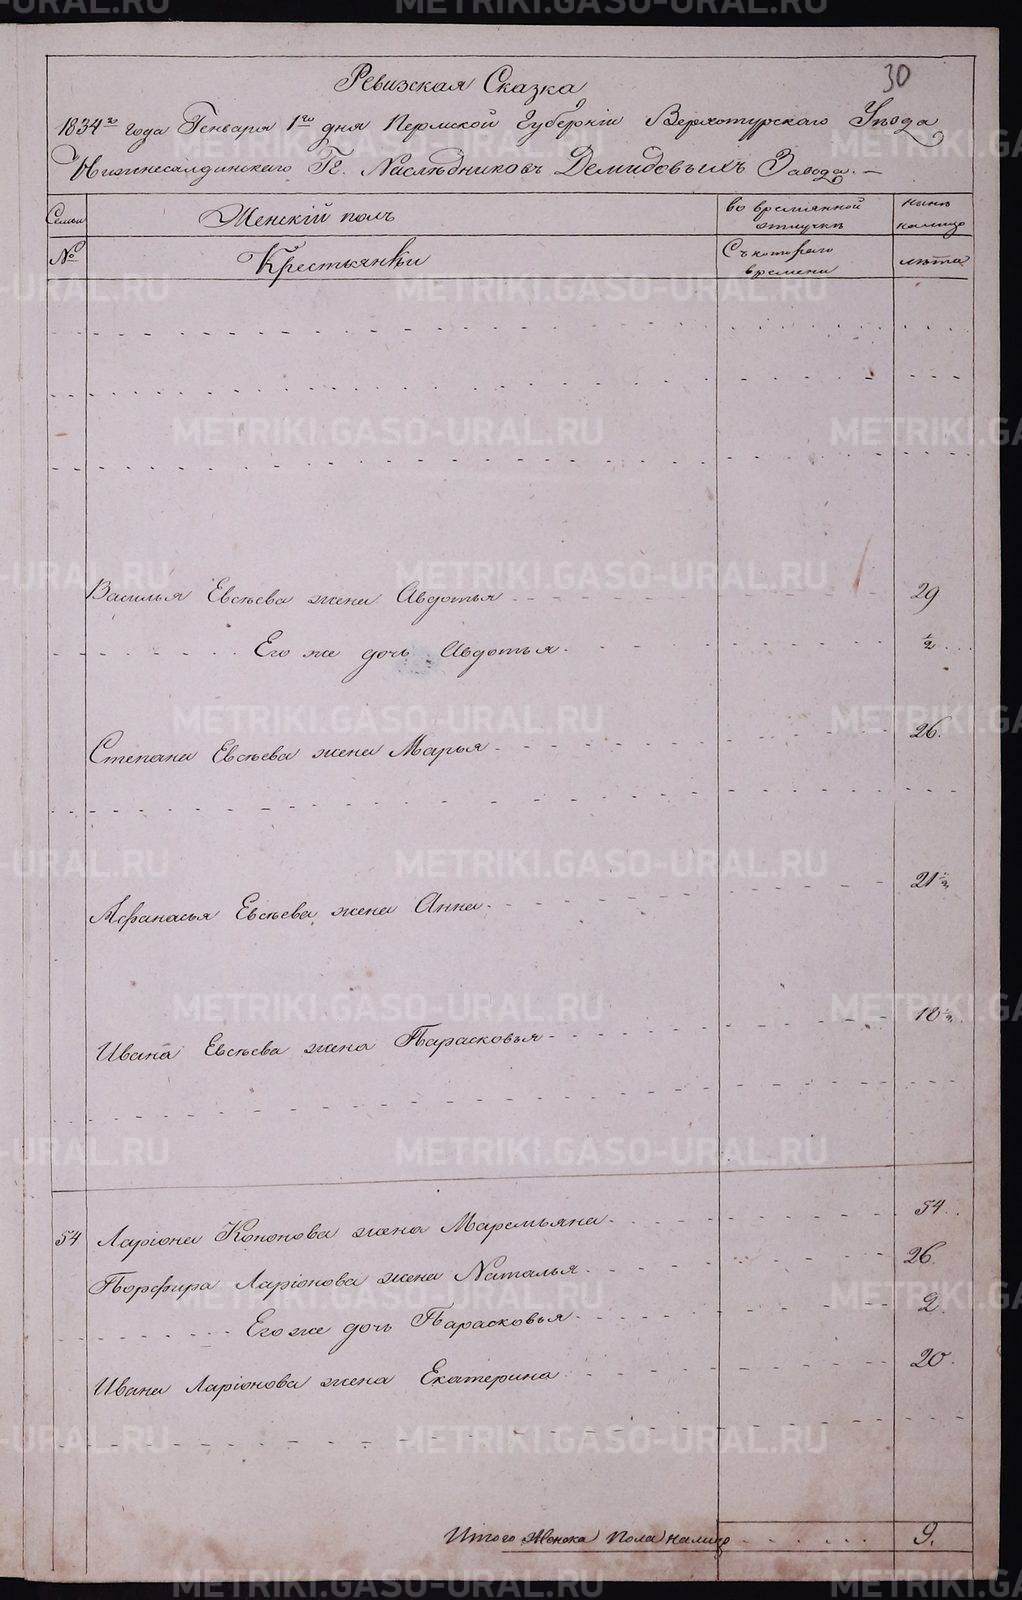 Ревизская Сказка
30
1834го года Генваря 1го дня Пермской Губернiи Верхотурскаго Уѣзда
Нижнесалдинскаго Гг. Наслѣдниковъ Демидовыхъ Завода. —
Семьи
Женскiй полъ
во временной отлучкѣ
нынѣ на лицо
№
Крестьянки
Съ котораго времени
лѣта
Василья Евсѣева жена Авдотья 29
Его же дочь Авдотья. ½
Степана Евсѣева жена Марья 26.
Афанасья Евсѣева жена Анна. 21½
Ивана Евсѣева жена Парасковья 18½
54 Ларiона Кононова жена Маремьяна. 54.
Порфира Ларiонова жена Наталья 26.
Его же дочь Парасковья 2.
Ивана Ларiонова жена Екатерина 20.
Итого Женска пола налицо 9.
METRIKI.GASO-URAL.RU